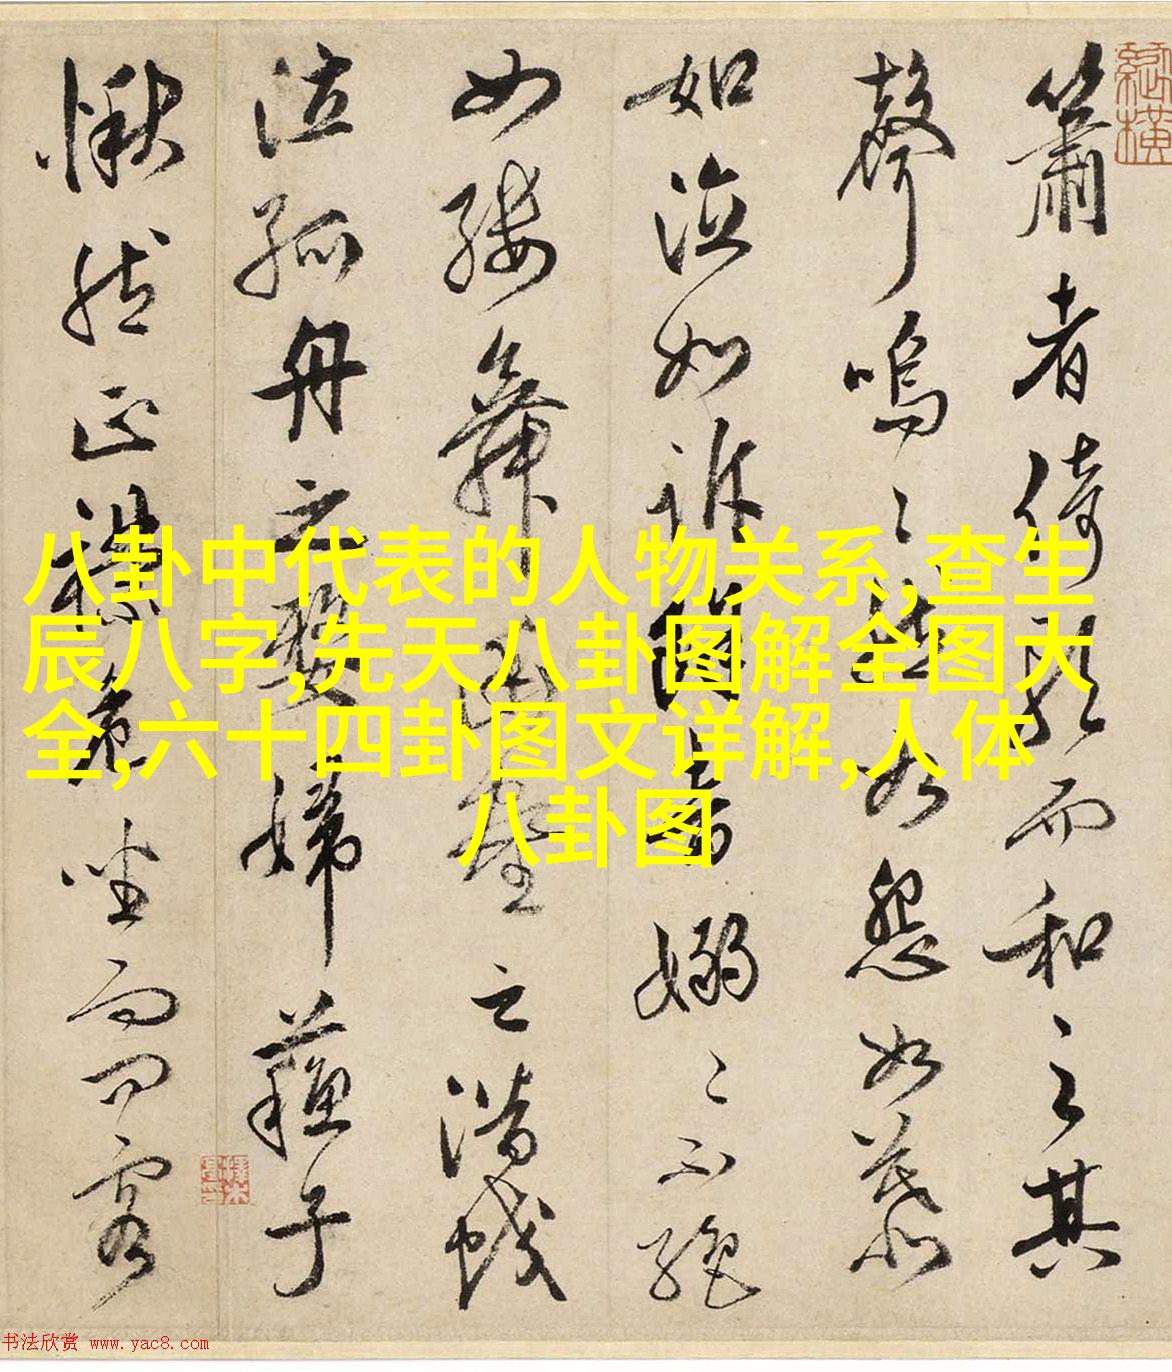 簫者倚歌而和之其
聲嗚々然如怨如慕
如泣如訴餘音嫋々不絕
如縷舞幽壑之潛蛟
泣孤舟之嫠婦蘇子
愀然正襟危坐而問客
八卦中代表的人物关系,查生
辰八字,先天八卦图解全图大
全,六十四卦图文详解,人体
八卦图
书法欣赏 www.yac8.com